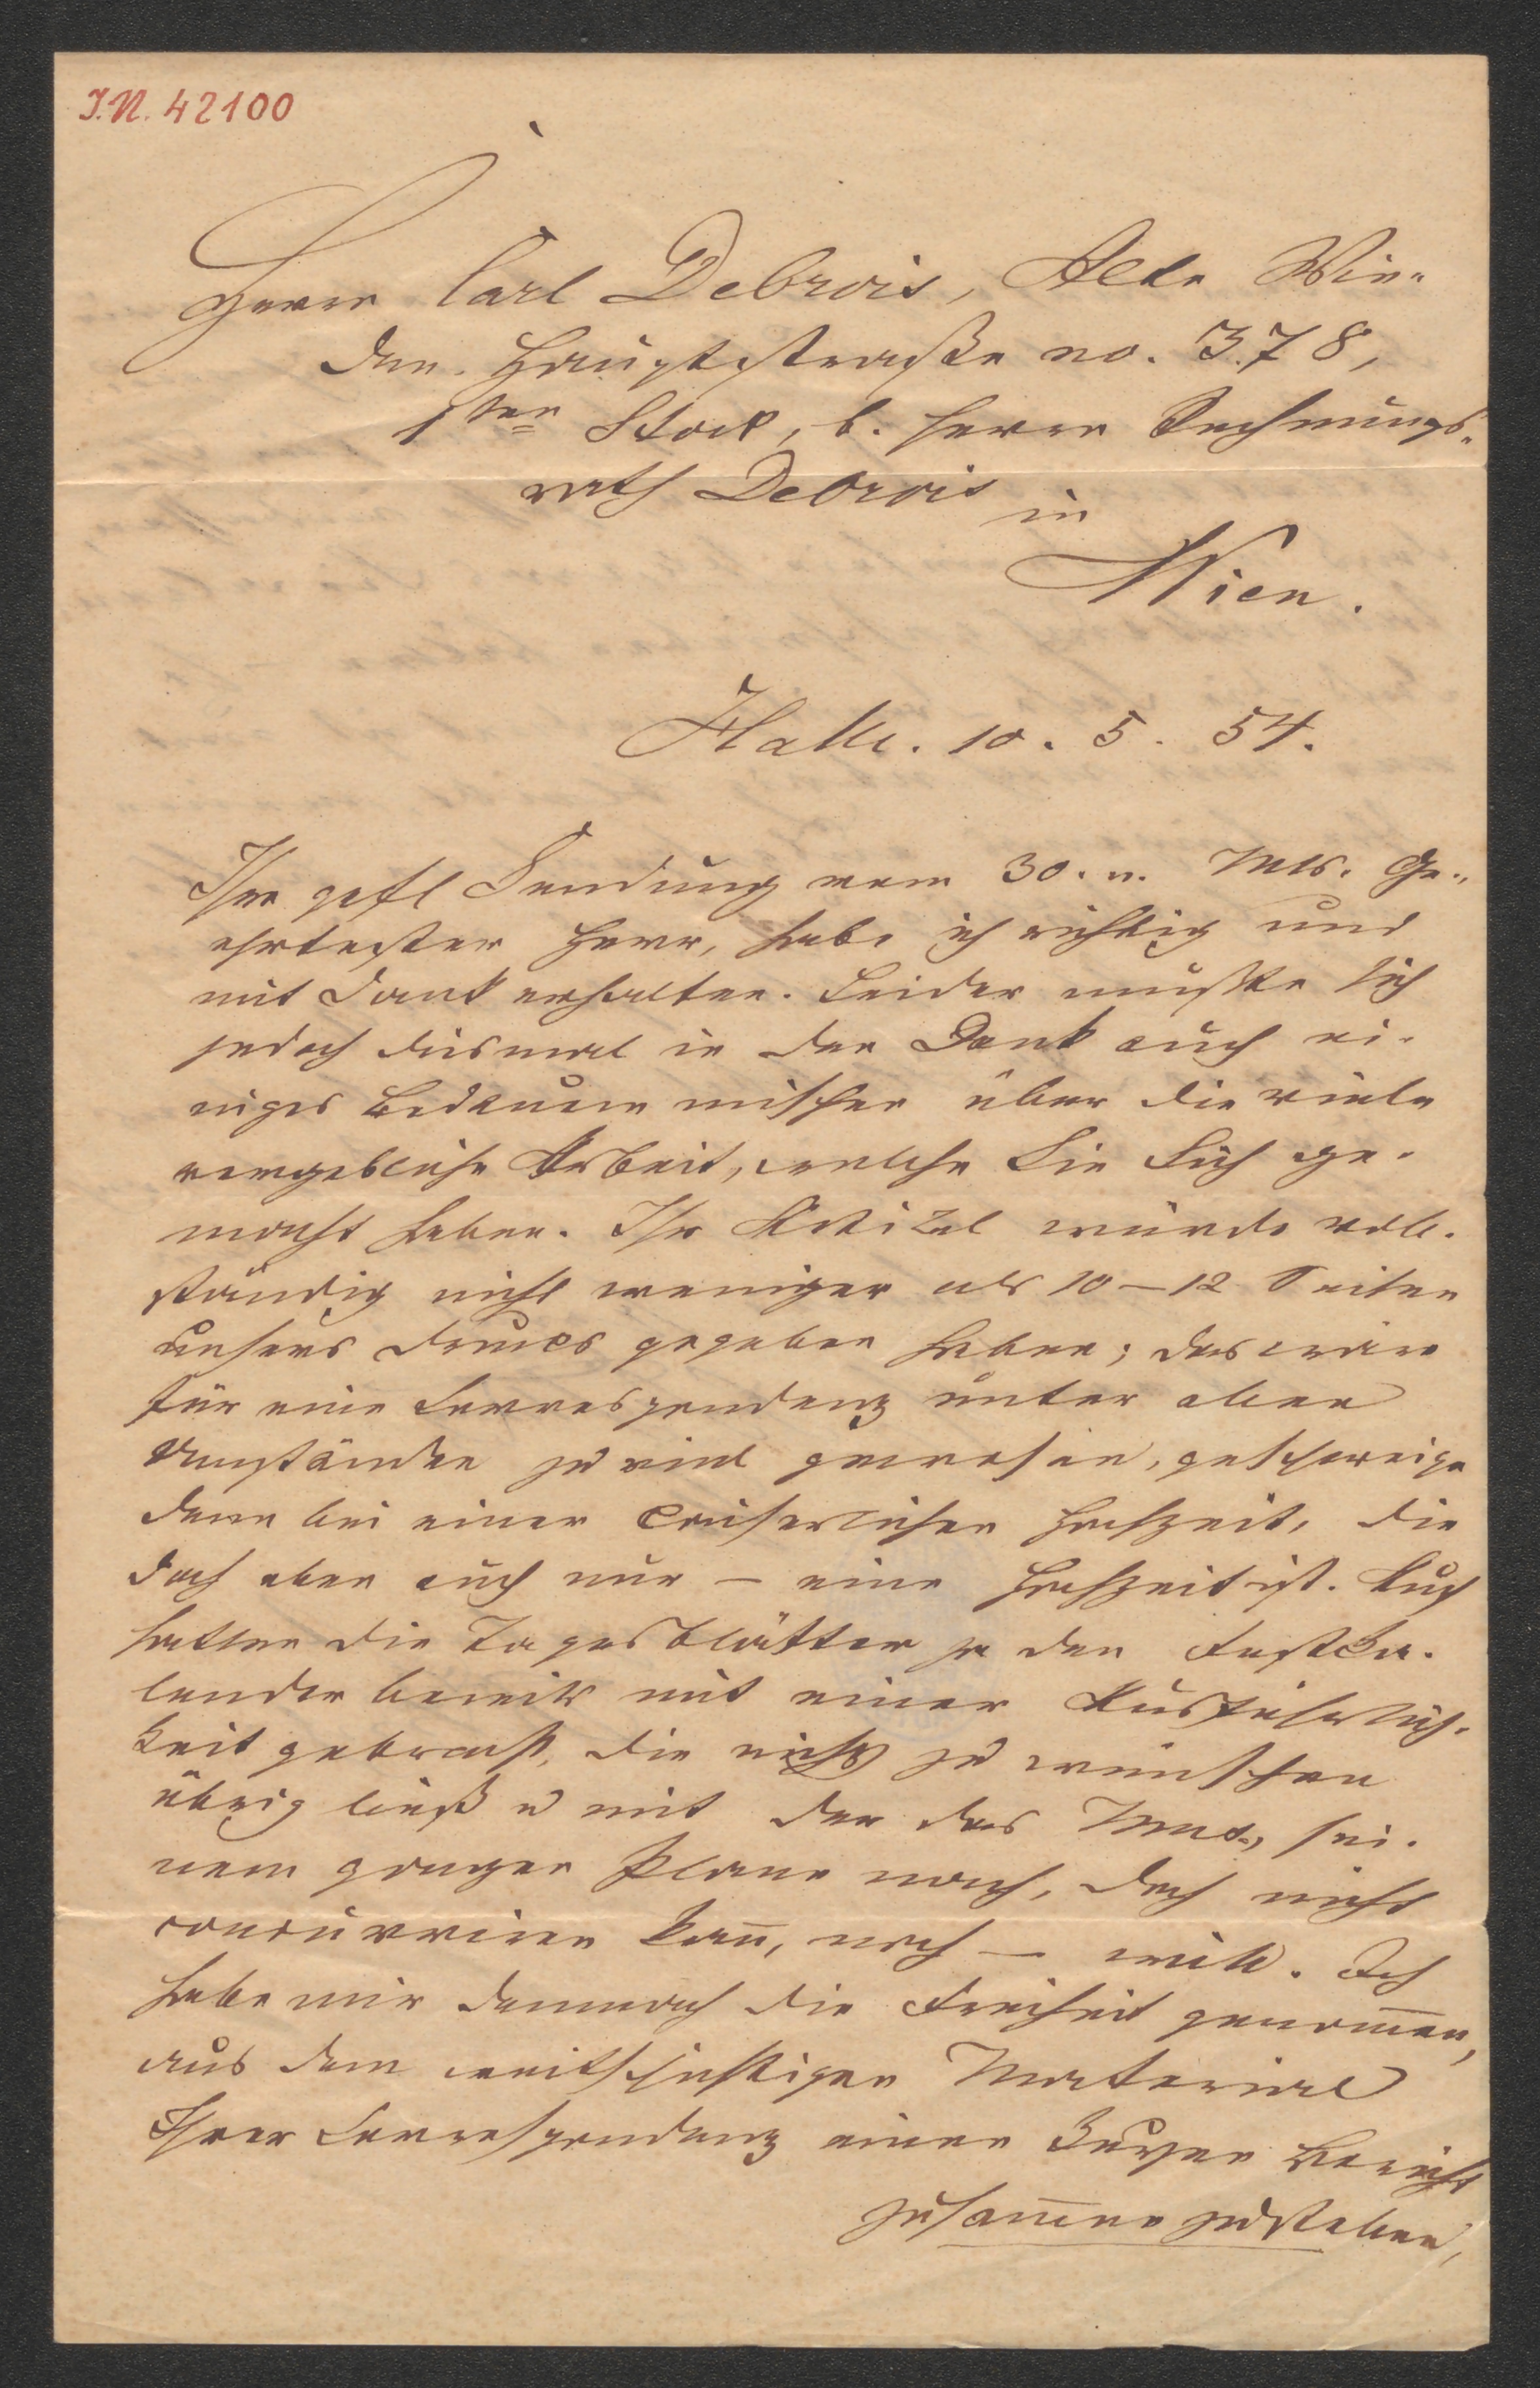 I.N. 42100
Herrn Carl Debrois, Alte Wie-
den. Hauptstraße no. 378,
1ten Stock, b. Herrn Rechnungs-
rath Debrois in
Wien.
Halle. 10. 5. 54.
Ihre gefl Sendung vom 30. v. Mts. Ge-
ehrtester Herr, habe ich richtig und
mit Dank erhalten. Leider mußte sich
jedoch diesmal in den Dank auch ei-
niges Bedauern mischen über die viele
vergebliche Arbeit, welche Sie Sich ge-
macht haben. Ihr Artikel würde voll-
ständig nicht weniger als 10–12 Seiten
unsers Drucks gegeben haben; das wäre
für eine Correspondenz unter allen
Umständen zu viel gewesen, geschweige
denn bei einer kaiserlichen Hochzeit, die
doch eben auch nur – eine Hochzeit ist. Auch
hatten die Tagesblätter ja den Festka-
lender bereits mit einer Ausführlich-
keit gebracht, die nichts zu wünschen
übrig ließ u mit der das Mus., sei-
nem ganzen Plane nach, doch nicht
concurriren kann, noch – will. Ich
habe mir demnach die Freiheit genommen,
aus dem weitschichtigen Material
Ihrer Correspondenz einen kurzen Bericht
zusammen zustellen,